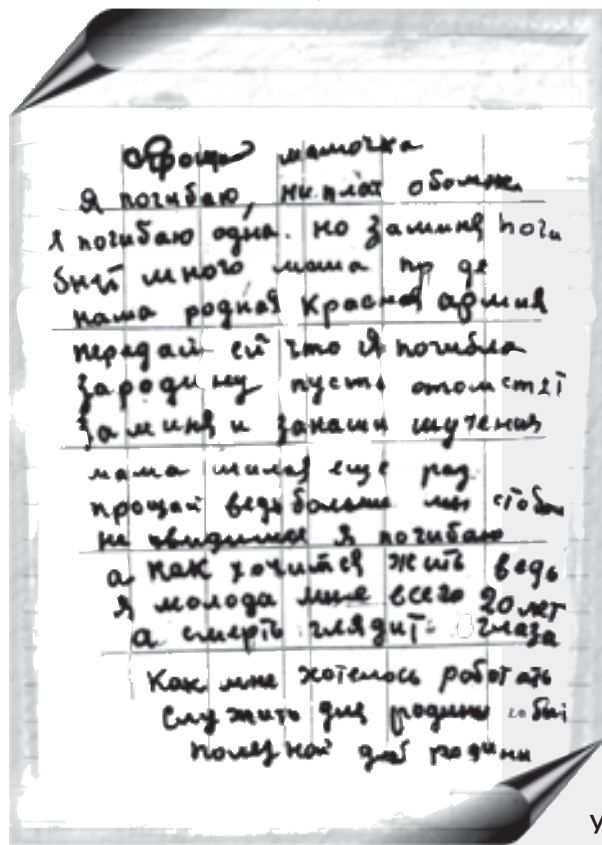 Прощай мамочка
Я погибаю, ни плат обомне
я погибаю одна. но заминя поги
бнит много мама пр де
наша родная Красная армия
передай ей что я погибла
зародину пусть отомстят
заминя и занаши мучения
мама милая еще раз
прощай ведь больше мы стобой
не увидимся я погибаю
а как хочится жить ведь
я молода мне всего 20 лет
а смерть глядит глаза
Как мне хотелось работать
служить для родины
полезной для родини
У